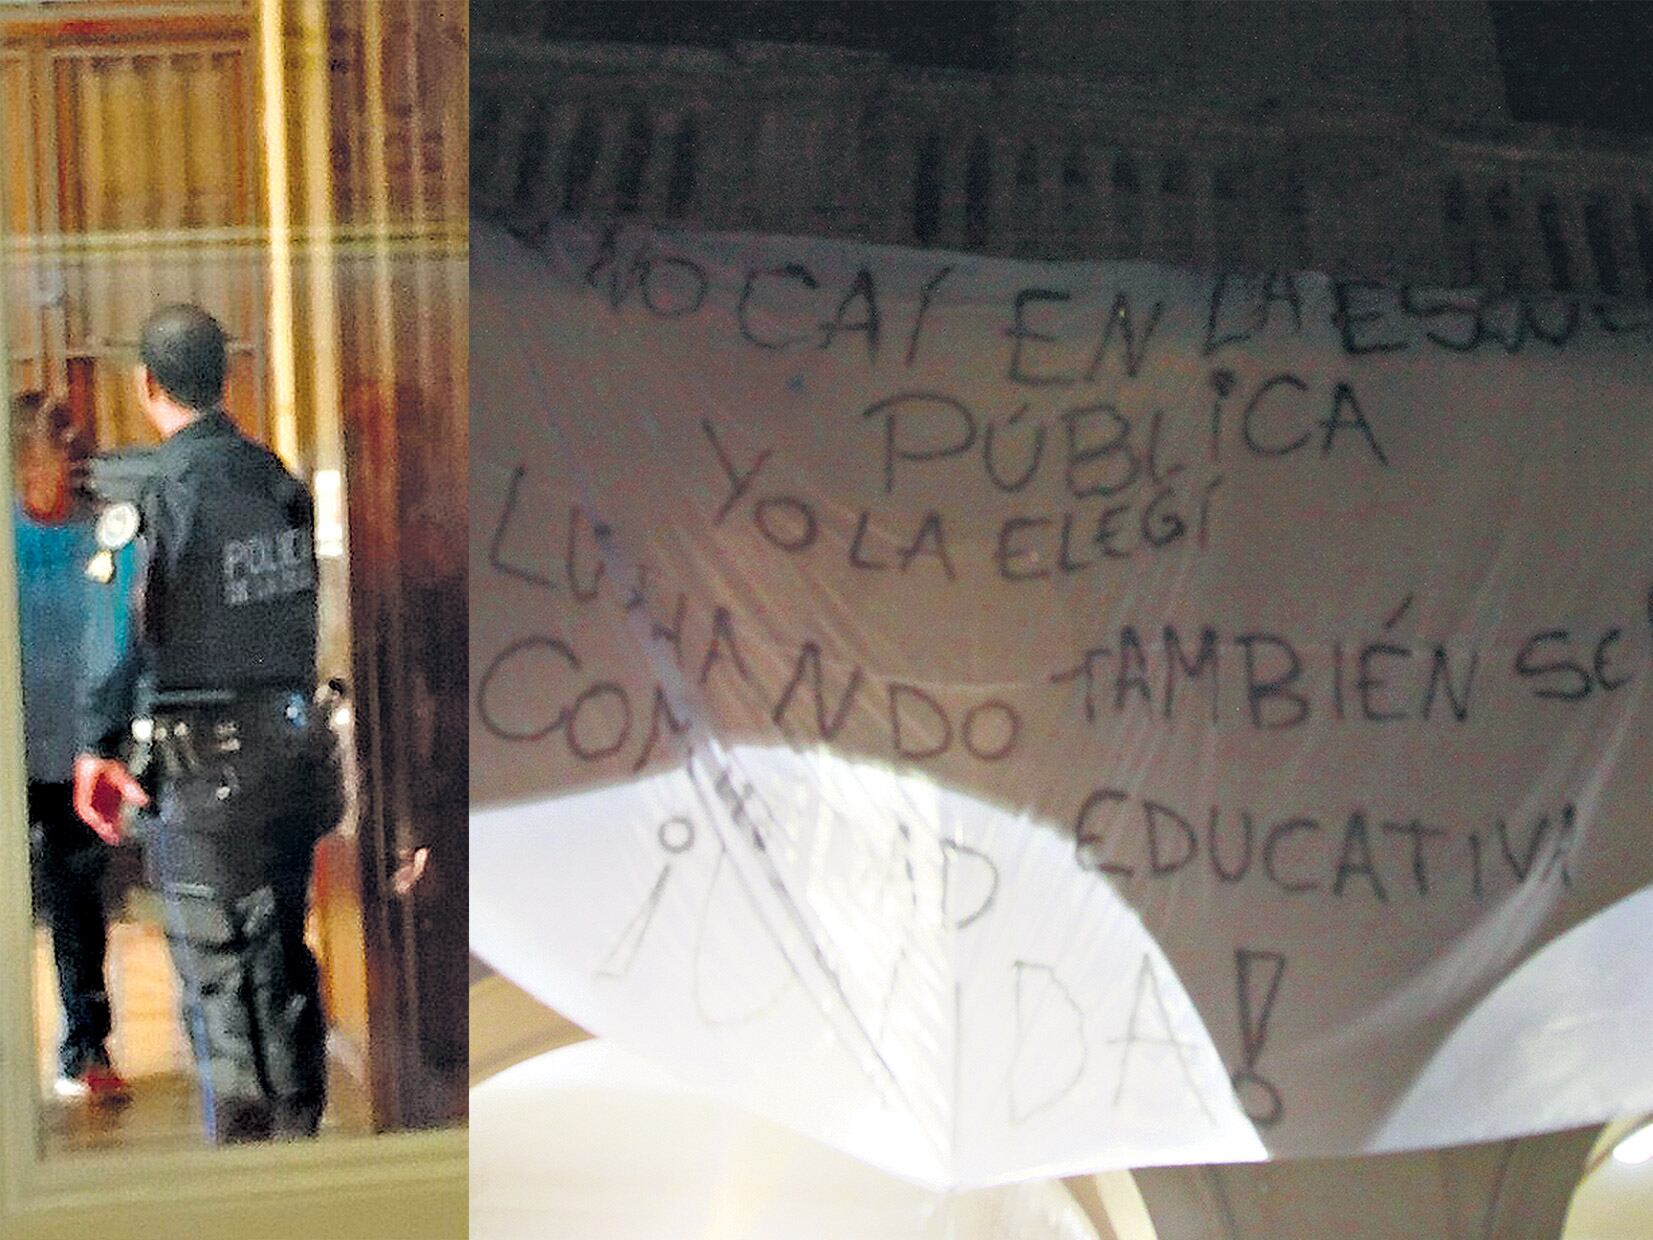 NO CAÍ EN LA ESCUE
PÚBLICA
YO LA ELEGÍ
LUCHANDO TAMBIÉN SE
COMUNIDAD EDUCATIVA
¡UNIDA!